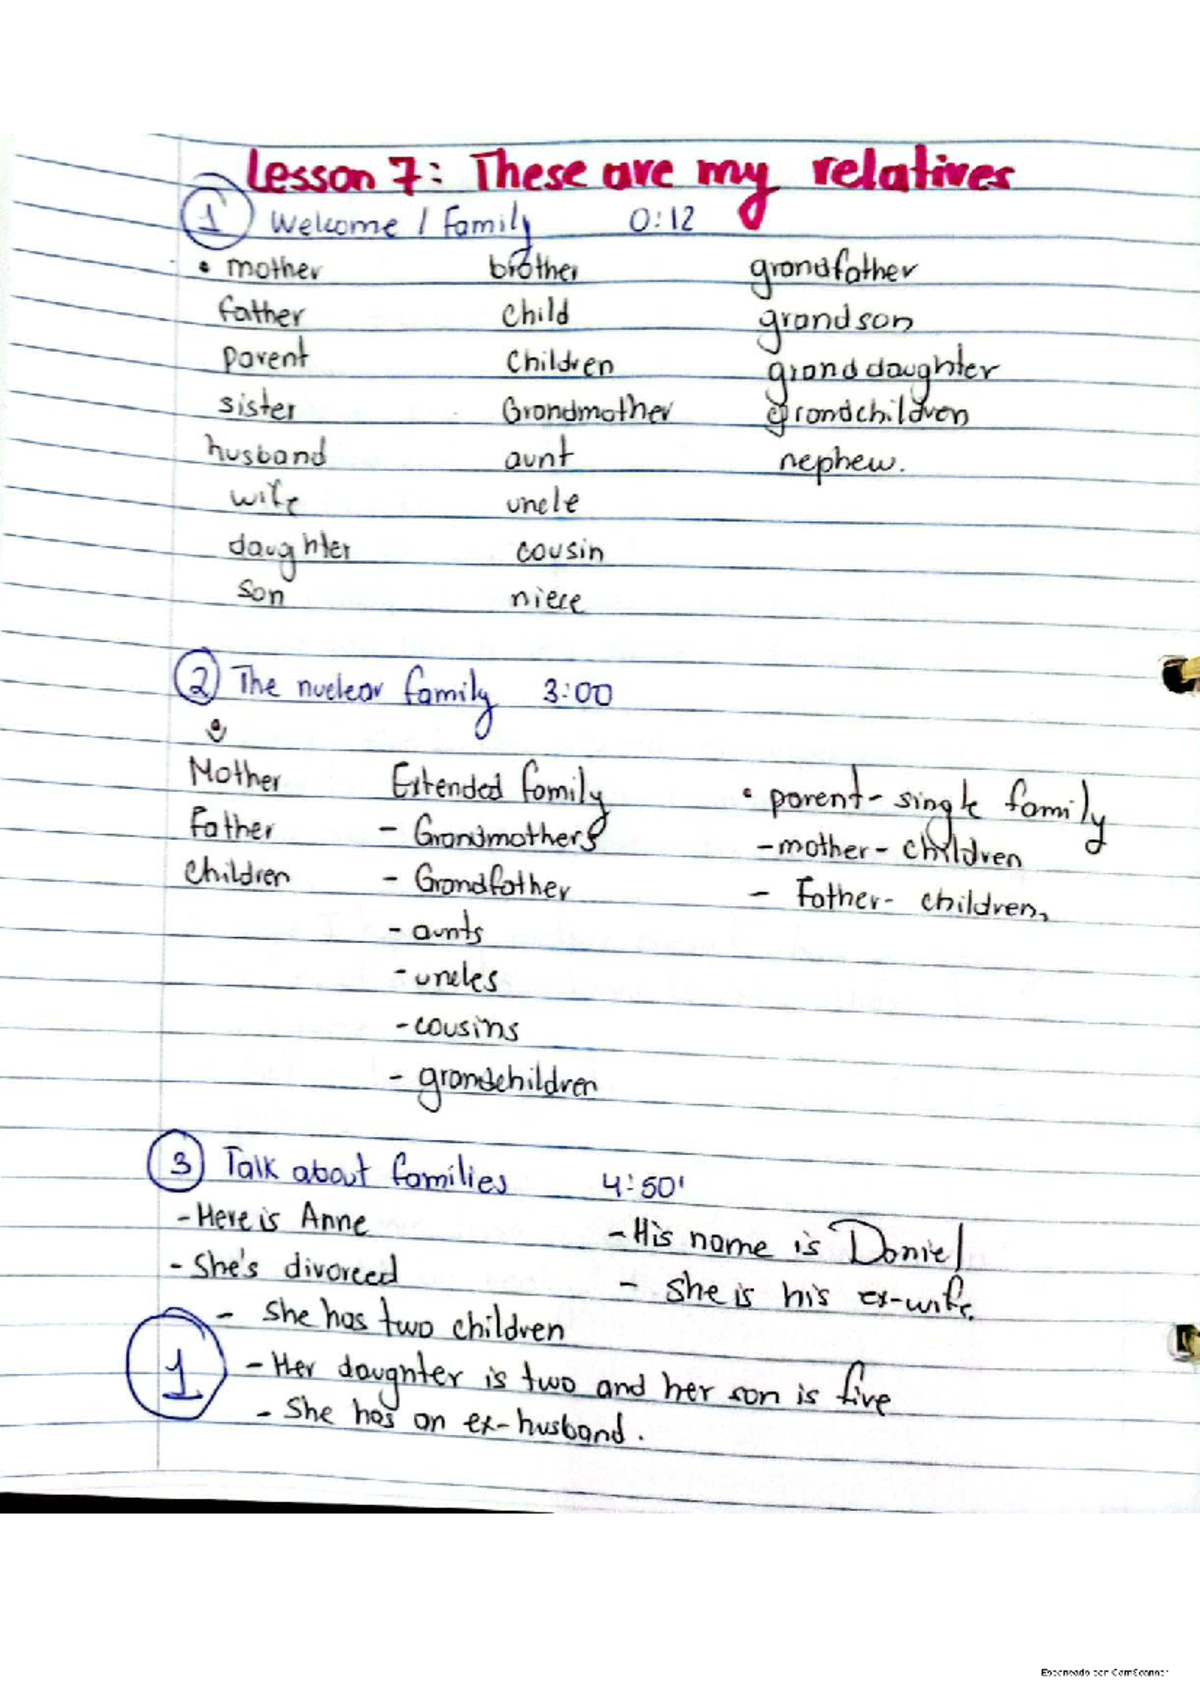 Lesson 7: These are my relatives
1 Welcome / Family 0:12
• mother brother grandfather
father child grandson
parent Children granddaughter
sister Grandmother grandchildren
husband aunt nephew.
wife uncle
daughter cousin
son niece
2 The nuclear family 3:00
Mother Extended family • parent - single family
Father - Grandmothers - mother - children
children - Grandfather - Father - children,
- aunts
- uncles
- cousins
- grandchildren
3 Talk about families 4:50'
- Here is Anne - His name is Daniel
- She's divorced - She is his ex-wife.
- She has two children
1 - Her daughter is two and her son is five
- She has an ex-husband.
Escaneado con CamScanner